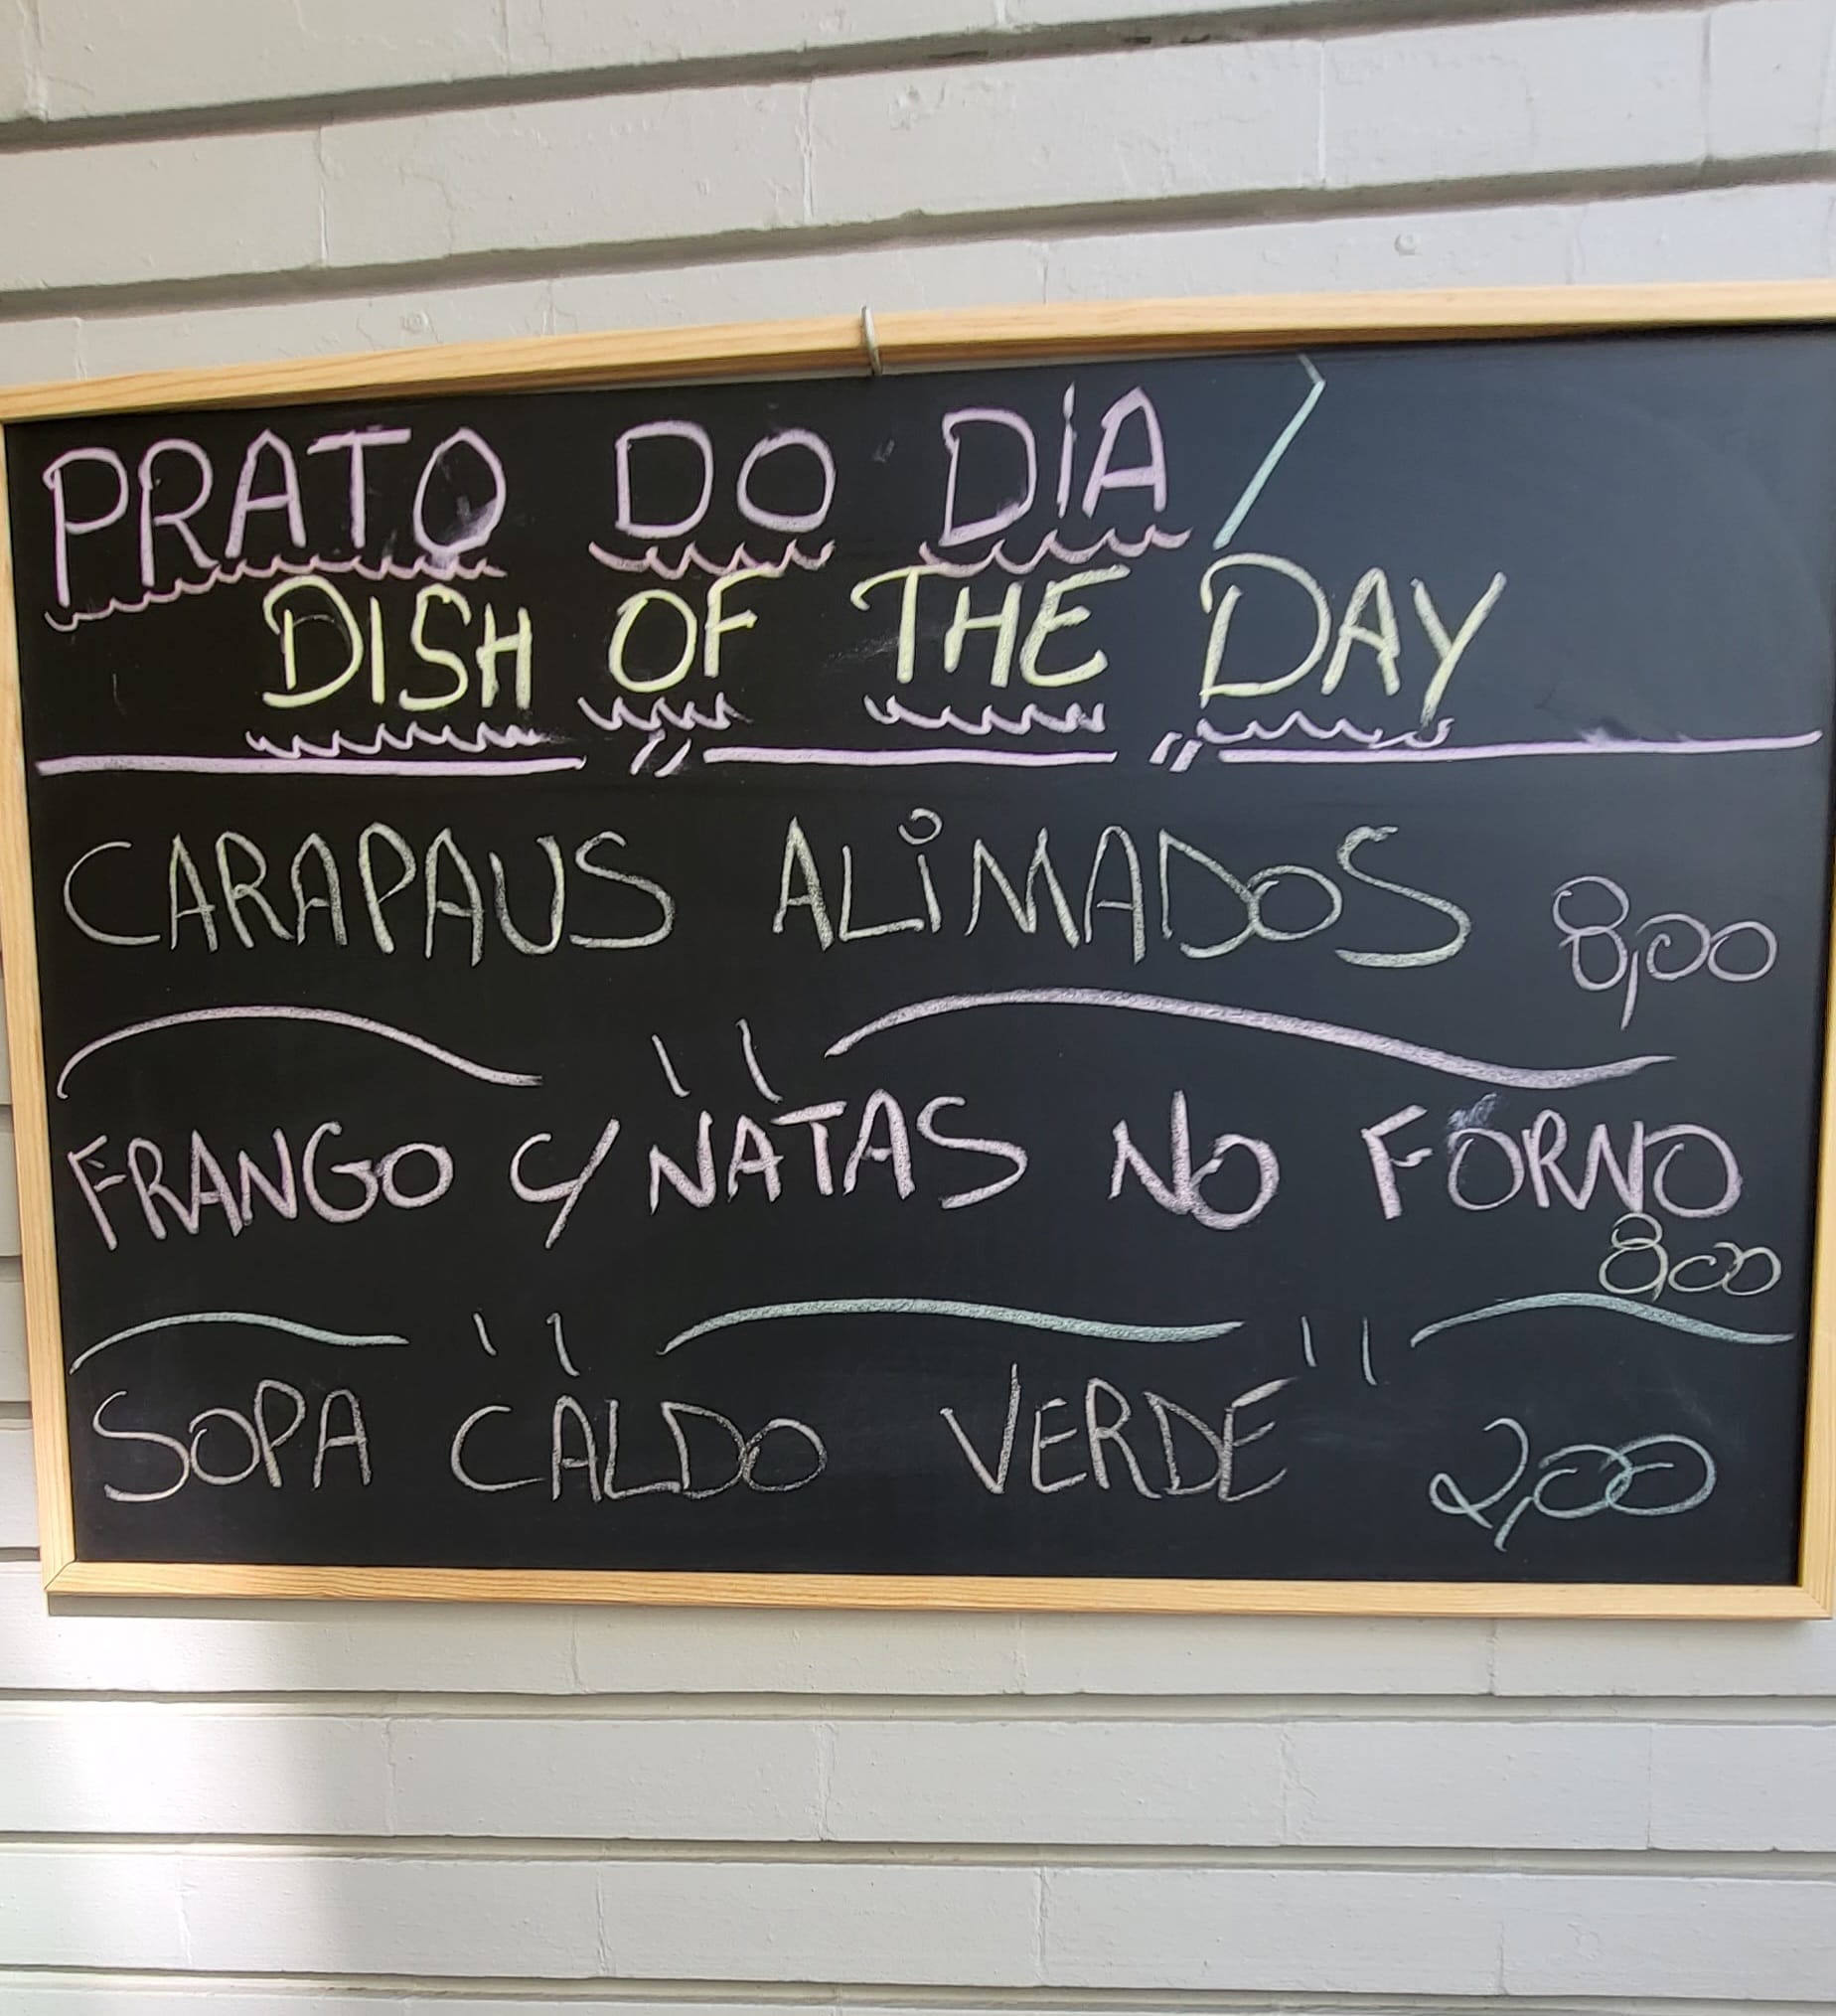 PRATO DO DIA /
DISH OF THE DAY
CARAPAUS ALIMADOS 8,00
FRANGO C/ NATAS NO FORNO
8,00
SOPA CALDO VERDE 2,00